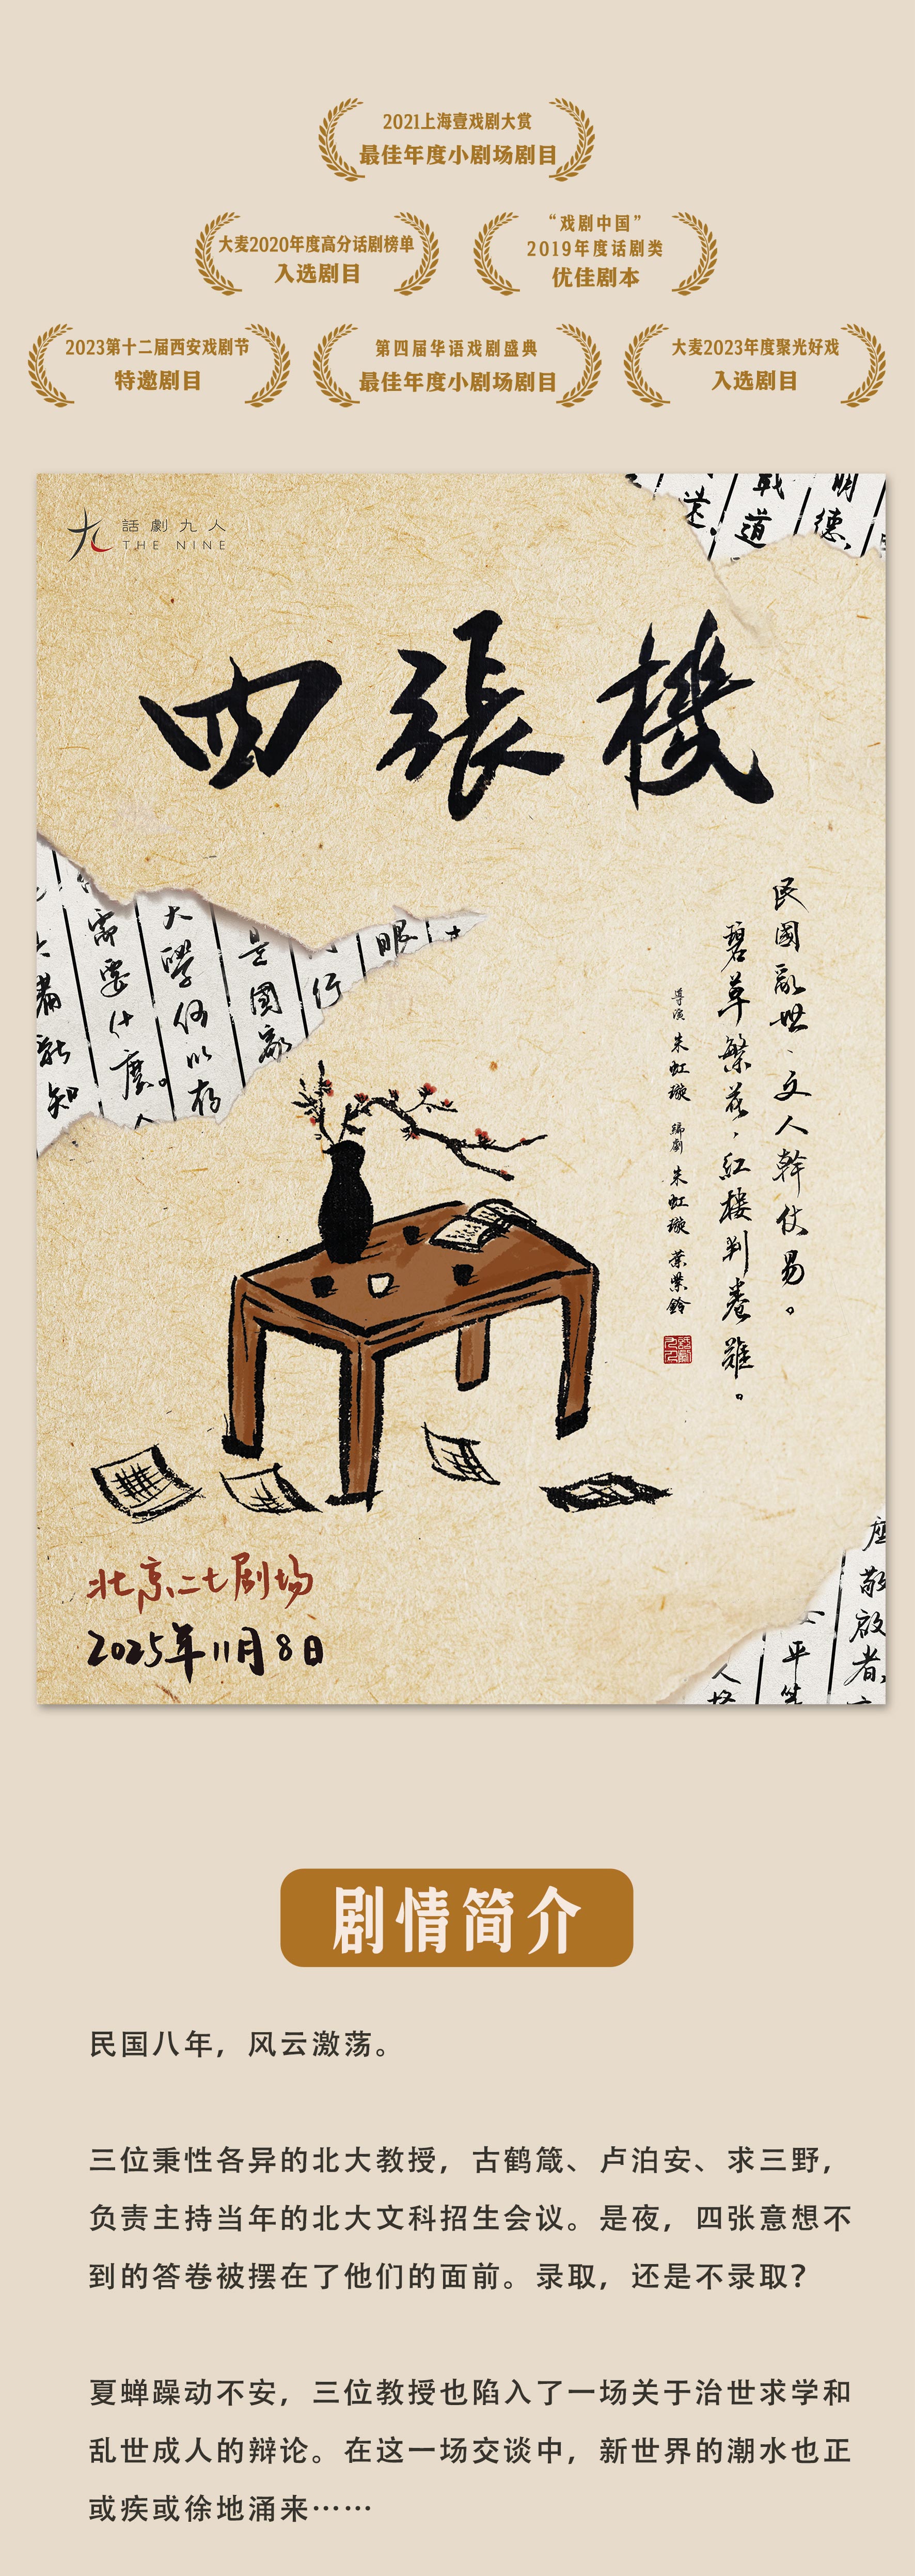 2021上海壹戏剧大赏
最佳年度小剧场剧目
大麦2020年度高分话剧榜单
入选剧目
“戏剧中国”
2019年度话剧类
优佳剧本
2023第十二届西安戏剧节
特邀剧目
第四届华语戏剧盛典
最佳年度小剧场剧目
大麦2023年度聚光好戏
入选剧目
話劇九人
THE NINE
明德，
戰道
四張機
民國亂世、文人幹仗易。
碧草繁花，紅樓判卷難。
導演 朱虹璇 編劇 朱虹璇 葉紫鈴
眼
行
是國家
大學何以存
需要什麼。
能知
座敬啟者，
平等
人格
北京二七剧场
2025年11月8日
剧情简介
民国八年，风云激荡。
三位秉性各异的北大教授，古鹤箴、卢泊安、求三野，
负责主持当年的北大文科招生会议。是夜，四张意想不
到的答卷被摆在了他们的面前。录取，还是不录取？
夏蝉躁动不安，三位教授也陷入了一场关于治世求学和
乱世成人的辩论。在这一场交谈中，新世界的潮水也正
或疾或徐地涌来……